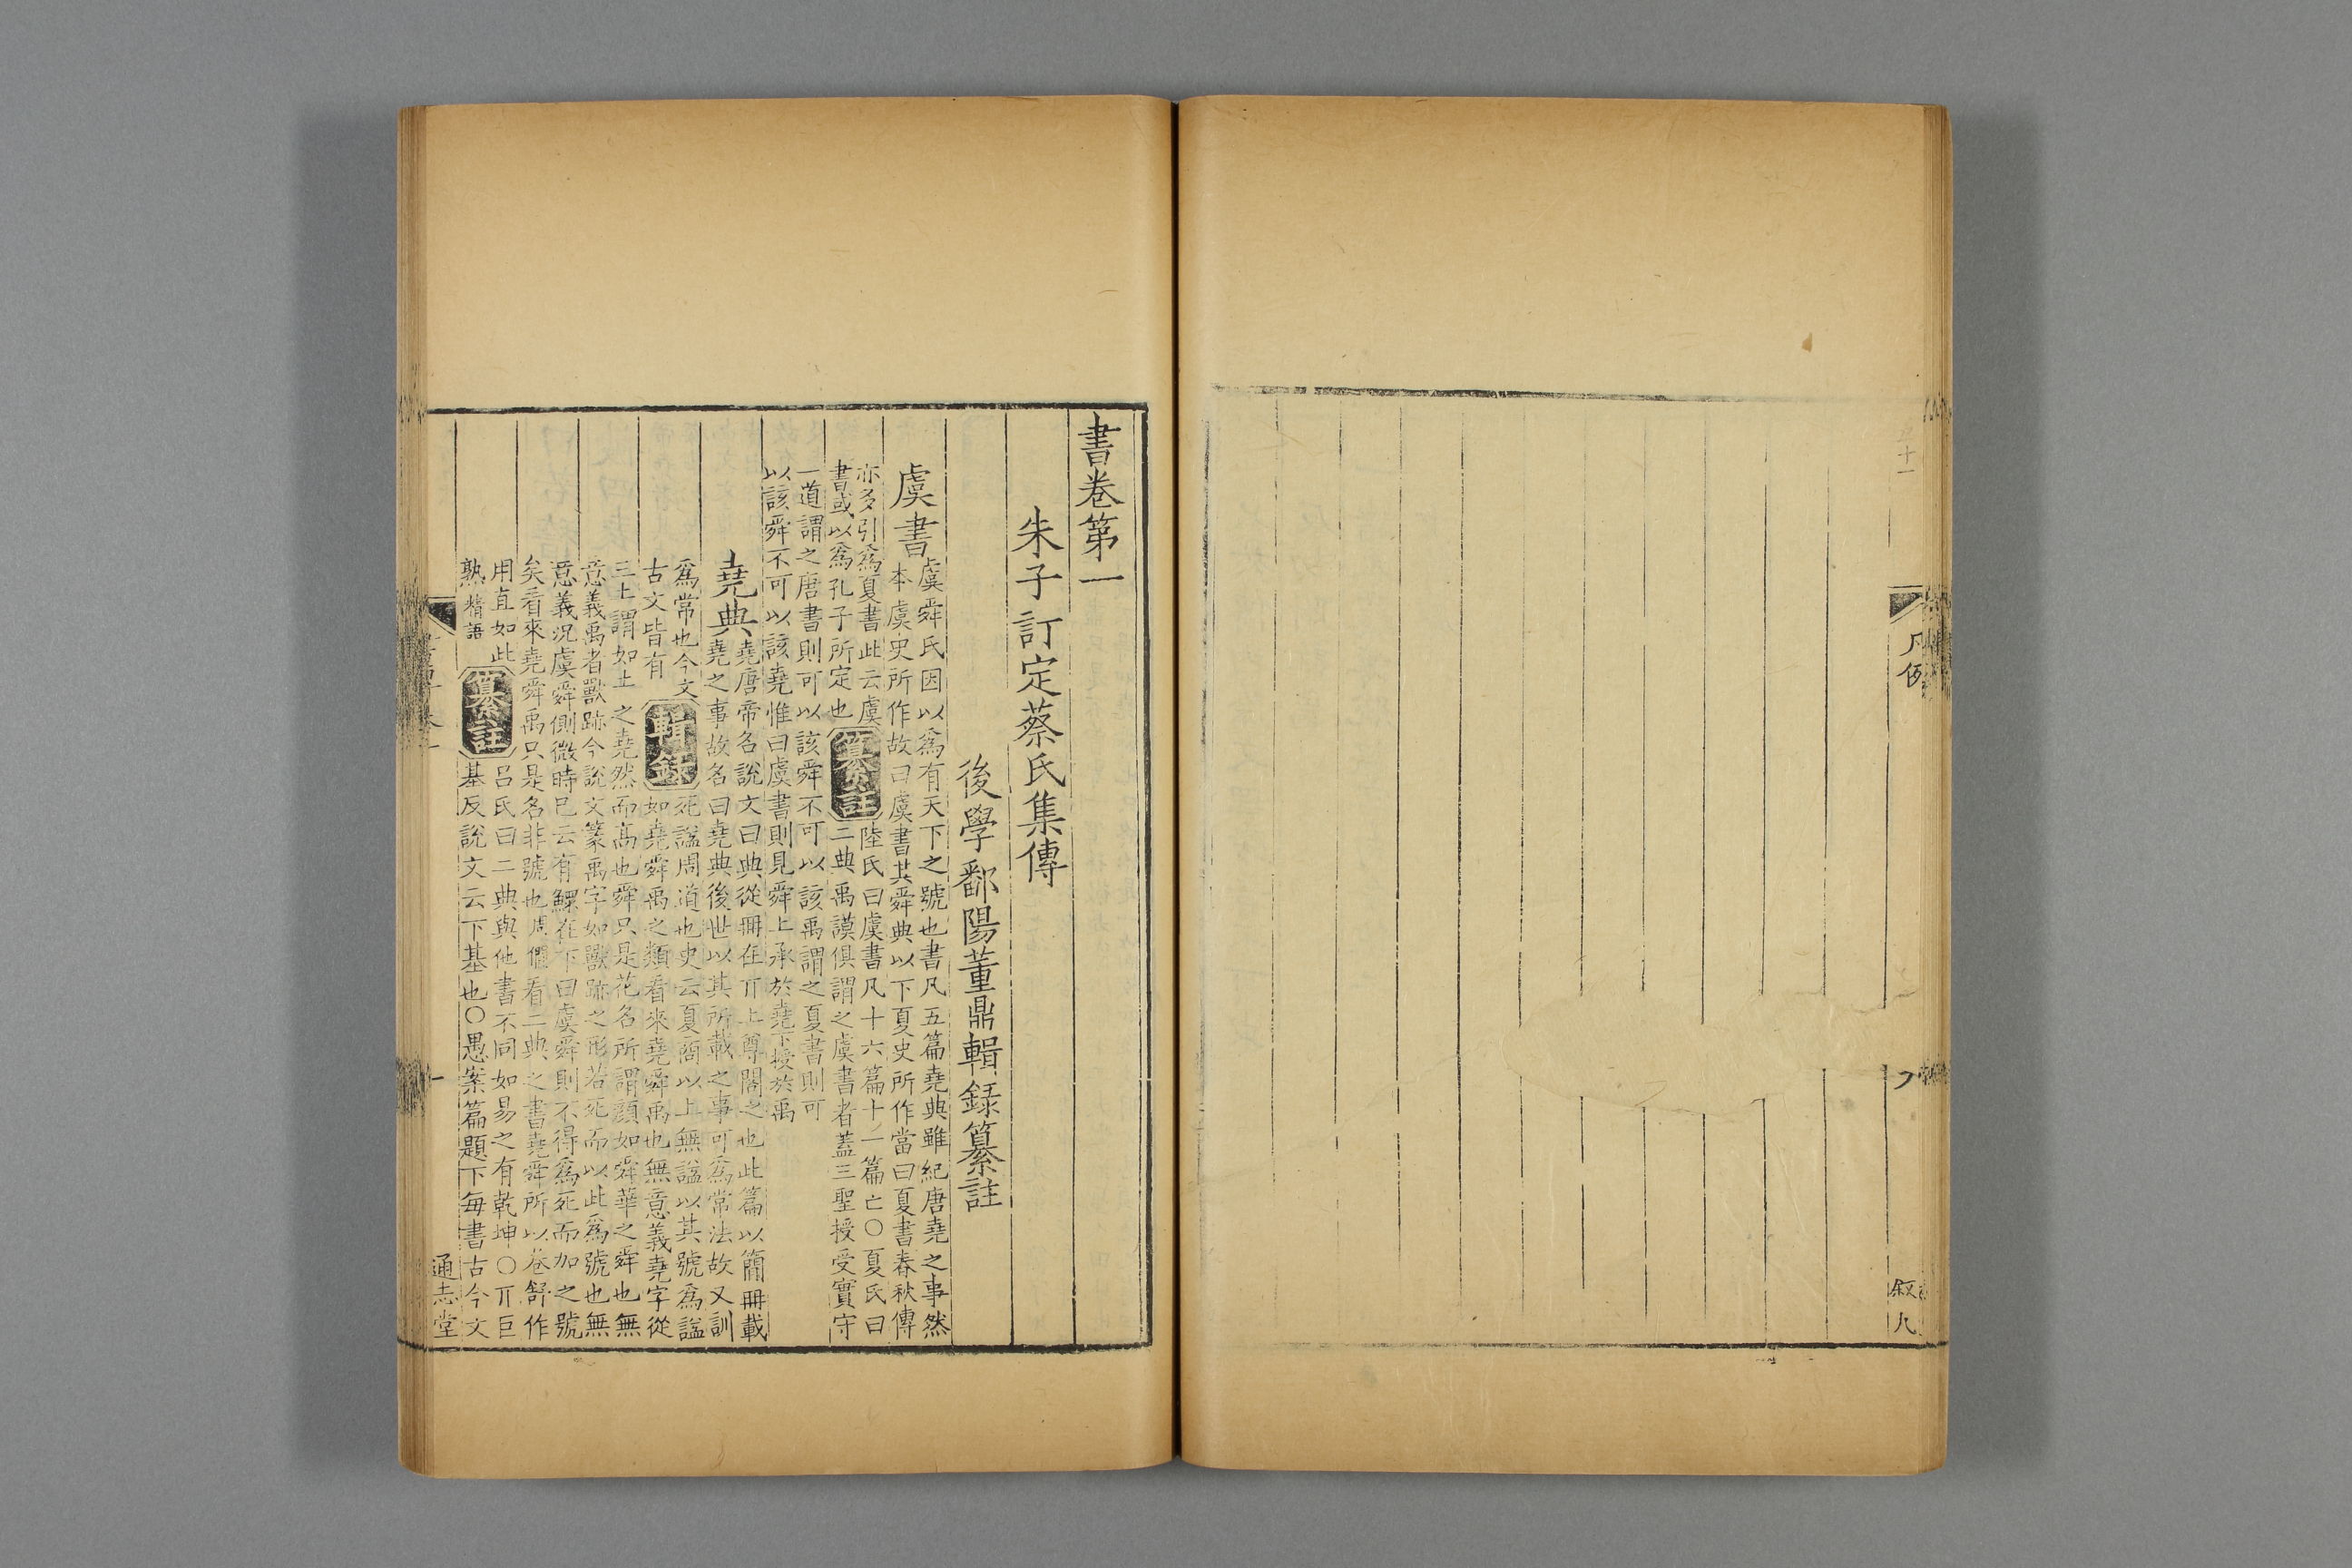 凡例
敘八
書卷第一
朱子訂定蔡氏集傳
後學鄱陽董鼎輯錄纂註
虞書
虞舜氏因以為有天下之號也書凡五篇堯典雖紀唐堯之事然
本虞史所作故曰虞書其舜典以下夏史所作當曰夏書春秋傳
亦多引為夏書此云虞
書或以為孔子所定也
纂註
陸氏曰虞書凡十六篇十一篇亡〇夏氏曰
二典禹謨俱謂之虞書者蓋三聖授受實守
一道謂之唐書則可以該舜不可以該禹謂之夏書則可
以該舜不可以該堯惟曰虞書則見舜上承於堯下授於禹
堯典
堯唐帝名說文曰典從冊在丌上尊閣之也此篇以簡冊載
堯之事故名曰堯典後世以其所載之事可為常法故又訓
為常也今文
古文皆有
輯錄
死謚周道也史云夏商以上無謚以其號為謚
如堯舜禹之類看來堯舜禹也無意義堯字從
三土謂如土之堯然而高也舜只是花名所謂顏如舜華之舜也無
意義禹者獸跡今說文篆禹字如獸跡之形若死而以此為號也無
意義況虞舜側微時已云有鰥在下曰虞舜則不得為死而加之號
矣看來堯舜禹只是名非號也周僩看二典之書堯舜所以卷舒作
用直如此
熟精語
纂註
呂氏曰二典與他書不同如易之有乾坤〇丌巨
基反說文云下基也〇愚案篇題下每書古今文
一
通志堂